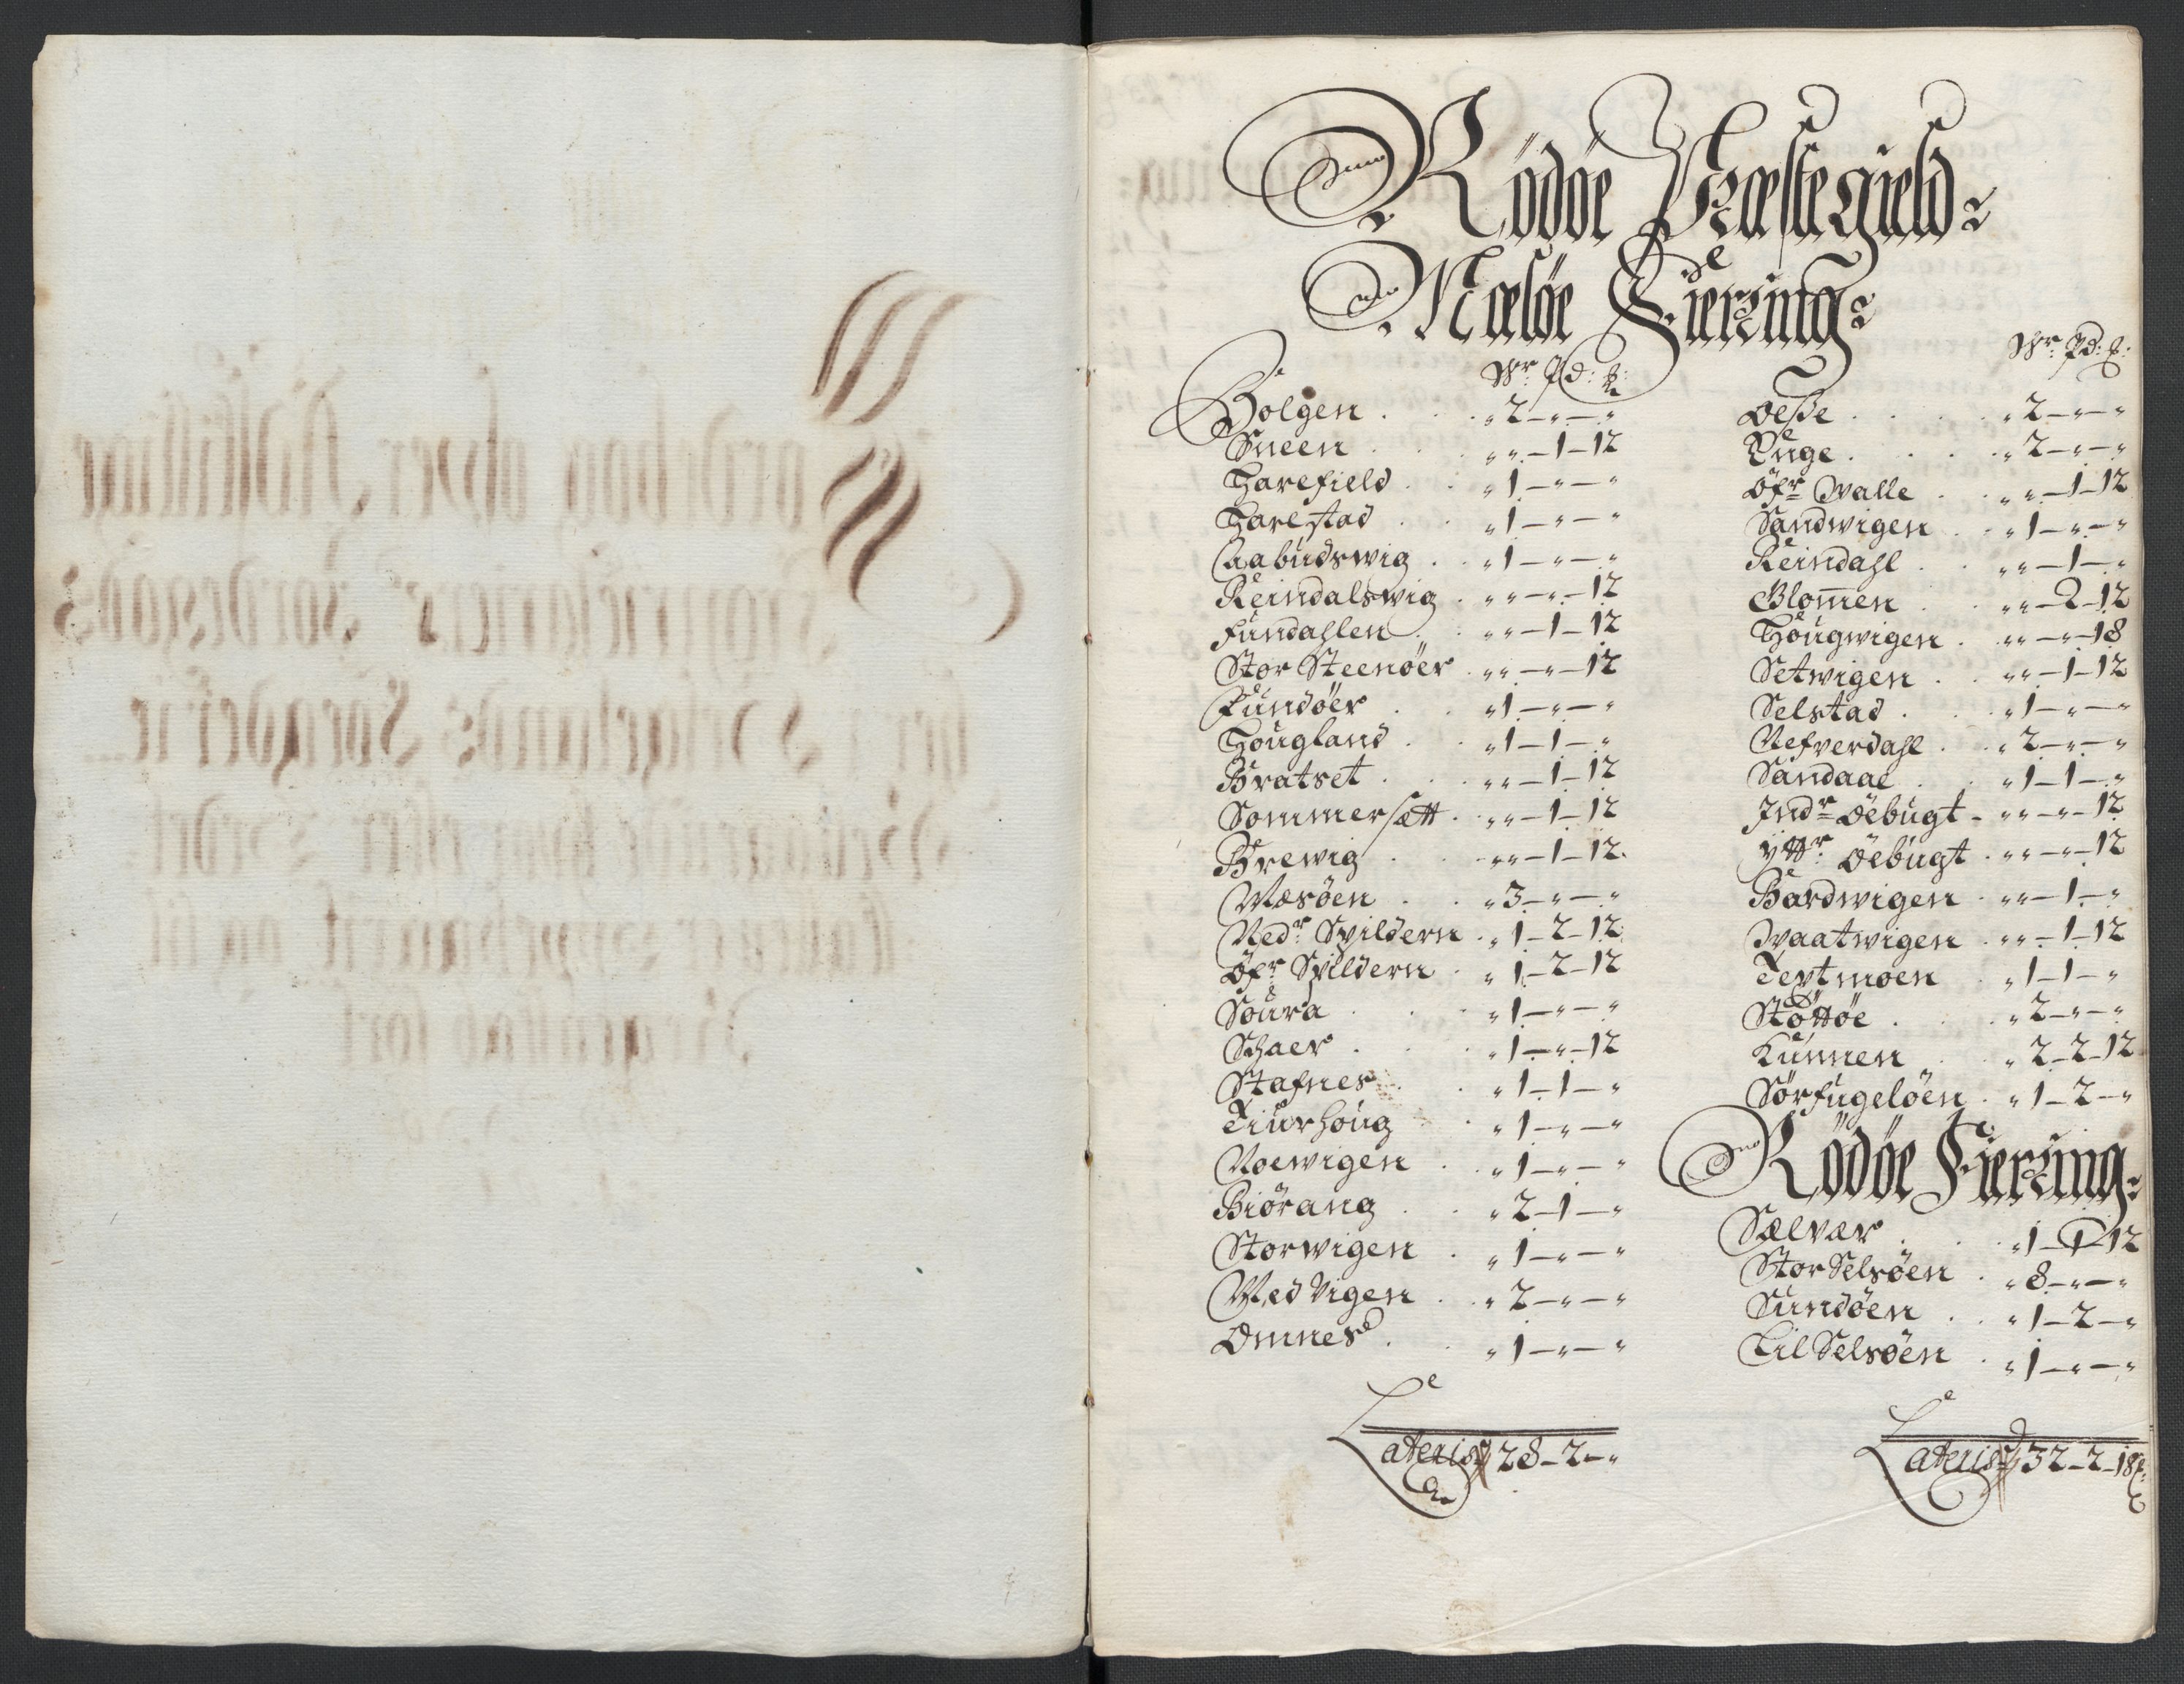 Rödöe Præstegield:
Meløe Fierring:
Wr: Pd: ℔:
Bolgen . . . „ 2 – „ – „
Sneen . . . „ „ – 1 – 12
Harefield . . „ 1 – „ – „
Harestad . . „ 1 – „ – „
Aabudswig . . „ 1 – „ – „
Reindalswig . „ „ – „ – 12
Fundahlen . „ „ – 1 – 12
Stor Steenöer . „ „ – „ – 12
Lundöer . „ 1 – „ – „
Hougland . „ 1 – 1 – „
Bratset . . „ „ – 1 – 12
Sommersætt . „ „ – 1 – 12
Brewig . . „ „ – 1 – 12
Mesöen . . „ 3 – „ – „
Nedr Spildern . „ 1 – 2 – 12
Öfr Spildern . „ 1 – 2 – 12
Soura . . „ 1 – „ – „
Schaer . . „ 1 – „ – 12
Stafnes . . „ 1 – 1 – „
Tiurhoug . „ 1 – „ – „
Noewigen . „ 1 – „ – „
Biörang . „ 2 – 1 – „
Storwigen . „ 1 – „ – „
Med Vigen . „ 2 – „ – „
Omnes . . „ 1 – „ – „
Lateris 28 – 2 – „
Wr: Pd: ℔:
Öeße . . . „ 2 – „ – „
Enge . . . „ 2 – „ – „
Öfr Walle . „ „ – 1 – 12
Sandwigen . „ 1 – „ – „
Reindahl . „ „ – 1 – „
Glomen . „ „ – 2 – 12
Hougwigen . „ „ – „ – 18
Setwigen . „ „ – 1 – 12
Selstad . . „ 1 – „ – „
Nefverdahl . „ 2 – „ – „
Sandaae . . „ 1 – 1 – „
Indr Öebugt – „ „ – „ – 12
Yttr Öebugt . „ „ – „ – 12
Bardwigen . „ „ – 1 – „
Waatwigen . „ „ – 1 – 12
Textmoen . „ 1 – 1 – „
Stöttöe . . „ 2 – „ – „
Kunnen . „ 2 – 2 – 12
Sörfugelöen . „ 1 – 2 – „
Rödöe Fierring:
Sælvær . . „ 1 – 1 – 12
Stor Selsöen . „ 8 – „ – „
Sundöen . . „ 1 – 2 – „
Lil Selsöen . „ 1 – „ – „
Lateris 32 – 2 – 18 ℔: